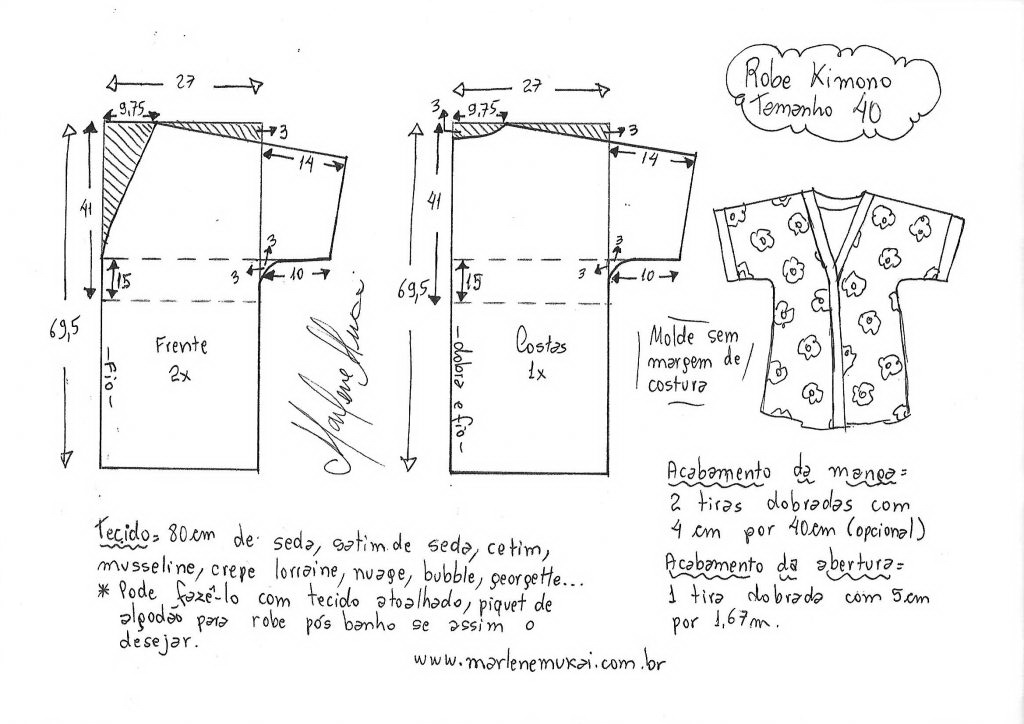 Robe Kimono
Tamanho 40
27
9,75
3
14
41
3
3
10
15
69,5
Frente
2x
-Fio-
Marlene Mukai
27
3
9,75
3
14
41
3
3
10
15
69,5
Costas
1x
-dobra e fio-
Molde sem
margem de
costura
Acabamento da manga=
2 tiras dobradas com
4 cm por 40cm (opcional)
Acabamento da abertura=
1 tira dobrada com 5cm
por 1,67m.
Tecido= 80cm de seda, satim de seda, cetim,
musseline, crepe lorraine, nuage, bubble, georgette...
* Pode fazê-lo com tecido atoalhado, piquet de
algodão para robe pós banho se assim o
desejar.
www.marlenemukai.com.br